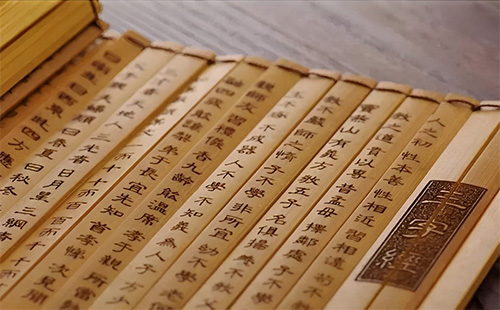 三字經
人之初性本善性相近習相遠苟不
教之道貴以專昔孟母擇鄰處子不
竇燕山有義方教五子名俱揚養不
教不嚴師之惰子不學非所宜幼不學老
玉不琢不成器人不學不知義為人子方少
親師友習禮儀香九齡能溫席孝於親所當
融四歲能讓梨弟於長宜先知首孝悌次見聞
一而十十而百
三才者天地人三光者日月星三綱
曰春夏曰秋冬
此四方應